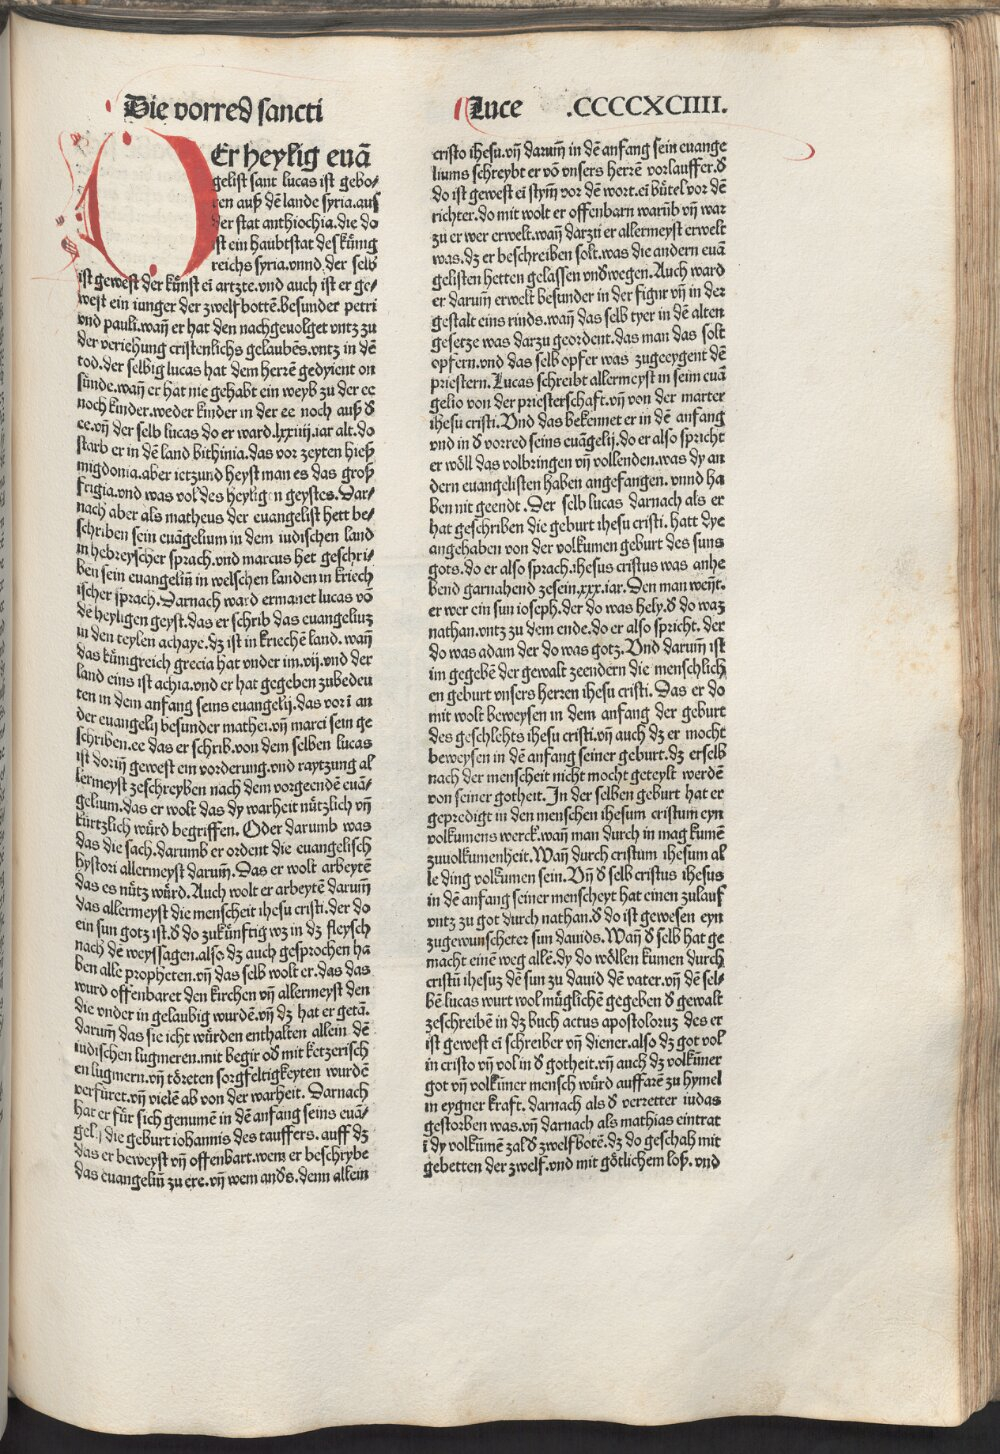 Die vorred sancti
Luce .CCCCXCIIII.
DEr heylig euā
gelist sant lucas ist gebo⸗
ren auß dē lande syria.aus
der stat anthiochia.die do
ist ein haubtstat des kůnig
reichs syria.vnnd der selb
ist gewest der kůnst ei artzte.vnd auch ist er ge⸗
west ein iunger der zwelf bottē.besunder petri
vnd pauli.wañ er hat den nachgeuolget vntz zu
der veriehung cristenlichs gelaubēs.vntz in dē
tod.der selbig lucas hat dem herrē gedyient on
sůnde.wañ er hat nie gehabt ein weyb zu der ee
noch kinder.weder kinder in der ee noch auß d̕
ee.vñ der selb lucas do er ward.lxxiiij.iar alt.do
starb er in dē land bithinia.das vor zeyten hieß
migdonia.aber ietzund heyst man es das groß
frigia.vnd was vol des heyligen geystes.Dar⸗
nach aber als matheus der euangelist hett be⸗
schriben sein euāgelium in dem iudischen land
in hebreyscher sprach.vnd marcus het geschri⸗
ben sein euangeliū in welschen landen in kriech
ischer sprach.Darnach ward ermanet lucas vō
dē heyligen geyst.das er schrib das euangeliuz
in den teylen achaye.dz ist in kriechē land. wañ
das kůnigreich grecia hat vnder im.vij.vnd der
land eins ist achia.vnd er hat gegeben zubedeu
ten in dem anfang seins euangelij.das vor ī an
der euangelij besunder mathei.vñ marci sein ge
schriben.ee das er schrib.von dem selben lucas
ist doriñ gewest ein vorderung.vnd raytzung al
lermeyst zeschreyben nach dem vorgeendē euā⸗
gelium.das er wolt das dy warheit nůtzlich vñ
kůrtzlich wůrd begriffen. Oder darumb was
das die sach.darumb er ordent die euangelisch
hystori allermeyst darum̄. Das er wolt arbeytē
das es nůtz wůrd. Auch wolt er arbeytē darum̄
das allermeyst die menscheit ihesu cristi.der do
ein sun gotz ist.d̕ do zukůnftig wz in dz fleysch
nach dē weyssagen.also dz auch gesprochen ha
ben alle propheten.vñ das selb wolt er.das das
wurd offenbaret den kirchen vñ allermeyst den
die vnder in gelaubig wurdē.vñ dz hat er getā.
darum̄ das sie icht wůrden enthalten allein dē
iudischen lugmeren.mit begir od̕ mit ketzerisch
en lugmern.vñ tôreten sorgfeltigkeyten wurdē
verfůret.vñ vielē ab von der warheit. Darnach
hat er fůr sich genumē in dē anfang seins euā⸗
gelij die geburt iohannis des tauffers. auff dz
das er beweyst vñ offenbart.wem er beschrybe
das euangeliū zu ere.vñ wem and̕s.denn allein
cristo ihesu.vñ darum̄ in dē anfang sein euange
liums schreybt er vō vnsers herrē vorlauffer.d̕
do ist gewest ei stym̄ vor dē wort.ei bůtel vor dē
richter.do mit wolt er offenbarn warūb vñ war
zu er wer erwelt.wañ darzu er allermeyst erwelt
was.dz er beschreiben solt.was die andern euā
gelisten hetten gelassen vnd̕wegen.Auch ward
er darum̄ erwelt besunder in der figur vñ in der
gestalt eins rinds.wañ das selb tyer in dē alten
gesetze was darzu geordent.das man das solt
opfern.vnd das selb opfer was zugeeygent dē
priestern.Lucas schreibt allermeyst in seim euā
gelio von der priesterschaft.vñ von der marter
ihesu cristi.Vnd das bekennet er in dē anfang
vnd in d̕ vorred seins euāgelij.do er also spricht
er wôll das volbringen vñ vollenden.was dy an
dern euangelisten haben angefangen.vnnd ha
ben nit geendt .Der selb lucas darnach als er
hat geschriben die geburt ihesu cristi. hatt dye
angehaben von der volkumen geburt des suns
gots.do er also sprach.ihesus cristus was anhe
bend garnahend zesein.xxx.iar.Den man weynt.
er wer ein sun ioseph.der do was hely.d̕ do waz
nathan.vntz zu dem ende.do er also spricht. der
do was adam der do was gotz.Vnd darum̄ ist
im gegebē der gewalt zeendern die menschlich
en geburt vnsers herren ihesu cristi. Das er do
mit wolt beweysen in dem anfang der geburt
des geschlehts ihesu cristi.vñ auch dz er mocht
beweysen in dē anfang seiner geburt.dz er selb
nach der menscheit nicht mocht geteylt werdē
von seiner gotheit.In der selben geburt hat er
gepredigt in den menschen ihesum cristum eyn
volkumens werck.wañ man durch in mag kumē
zuuolkumenheit.Wañ durch cristum ihesum al
le ding volkumen sein.Vñ d̕ selb cristus ihesus
in dē anfang seiner menscheyt hat einen zulauf
vntz zu got durch nathan.d̕ do ist gewesen eyn
zugewunscheter sun dauids.Wañ d̕ selb hat ge
macht einē weg allē.dy do wôllen kumen durch
cristū ihesuz dē sun zu dauid dē vater.vñ dē sel⸗
bē lucas wurt wol můglichē gegeben d̕ gewalt
zeschreibē in dz buch actus apostoloruz des er
ist gewest ei schreiber vñ diener.also dz got vol
in cristo vñ vol in d̕ gotheit.vñ auch dz volkūner
got vñ volkūner mensch wůrd auffarē zu hymel
in eygner kraft. darnach als d̕ verretter iudas
gestorben was.vñ darnach als mathias eintrat
ī dy volkūmē zal d̕ zwelfbotē.dz do geschah mit
gebetten der zwelf.vnd mit gôtlichem loß. vnd